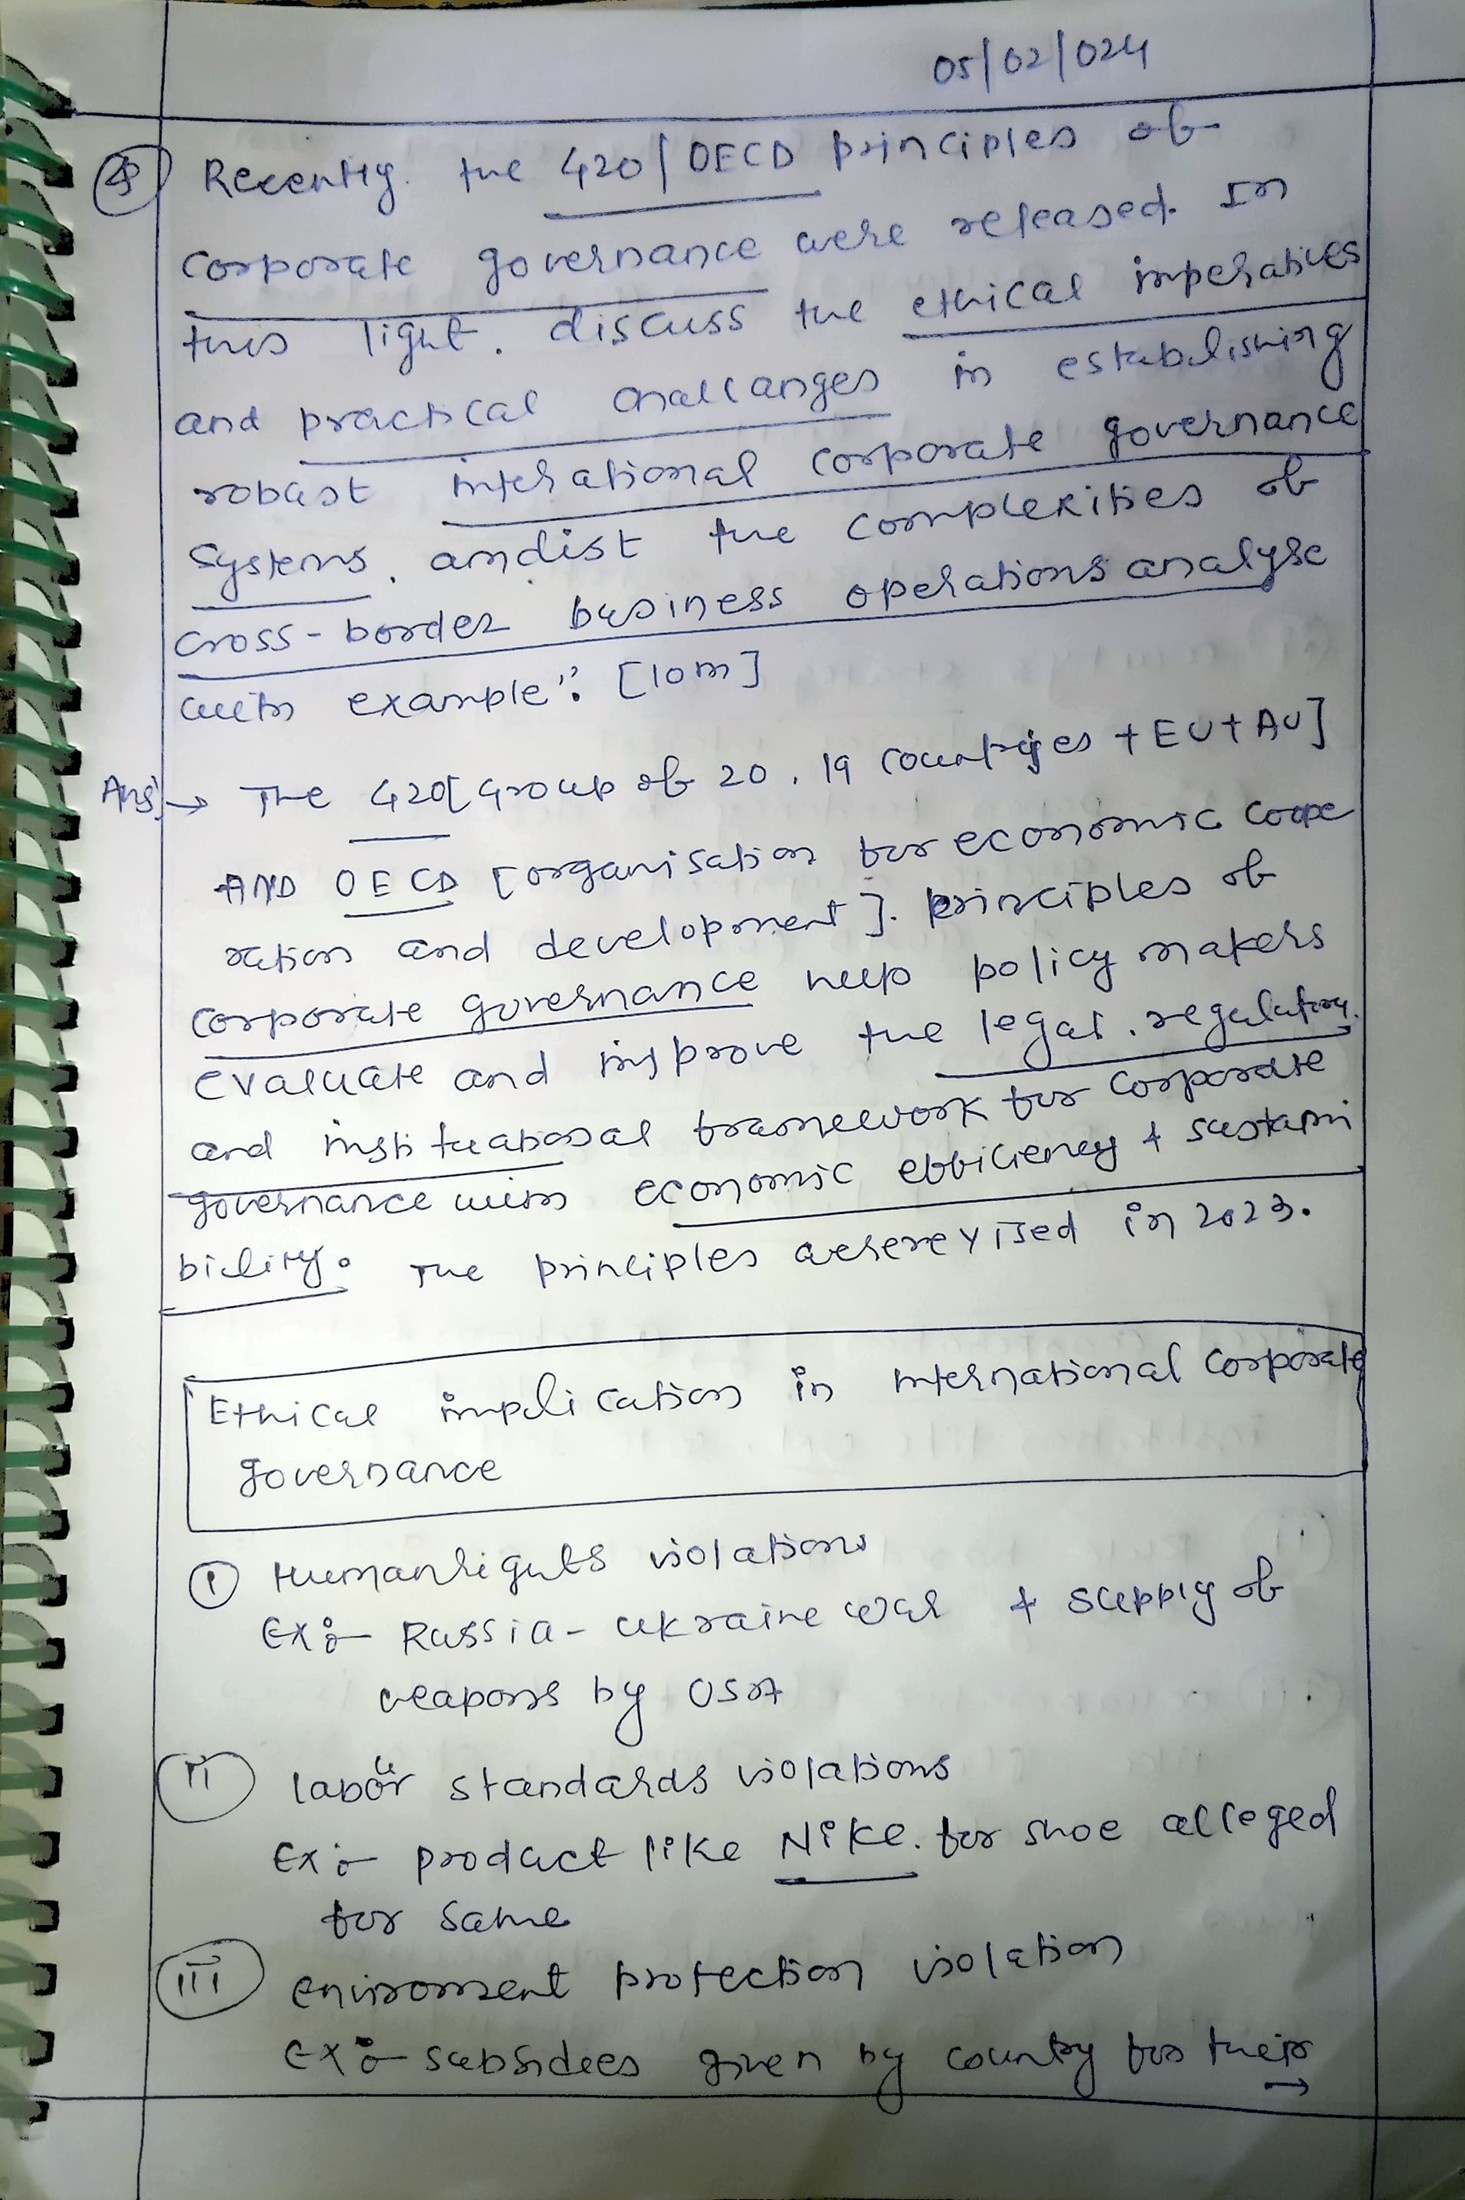 05/02/024
Q Recently. the G20/OECD principles of
corporate governance were released. In
this light. discuss the ethical imperatives
and practical challanges in establishing
robust interational corporate governance
systems, amdist the complexities of
cross-border business operations analyse
with example": [10m]
Ans → The G20[Group of 20, 19 countries + EU+AU]
AND OECD [organisation for economic coope
ration and development]. principles of
corporate governance help policy makers
evaluate and improve the legal, regulatory.
and institutional framework for corporate
governance with economic efficiency & sustaini
bility. The principles were revised in 2023.
Ethical implication in International corporate
governance
① Human rights violations
Ex:- Russia-ukraine war & supply of
weapons by USA
II labour standards violations
Ex:- product like Nike. for shoe alleged
for same
III enviroment protection violation
Ex:- subsidees given by country for their
→